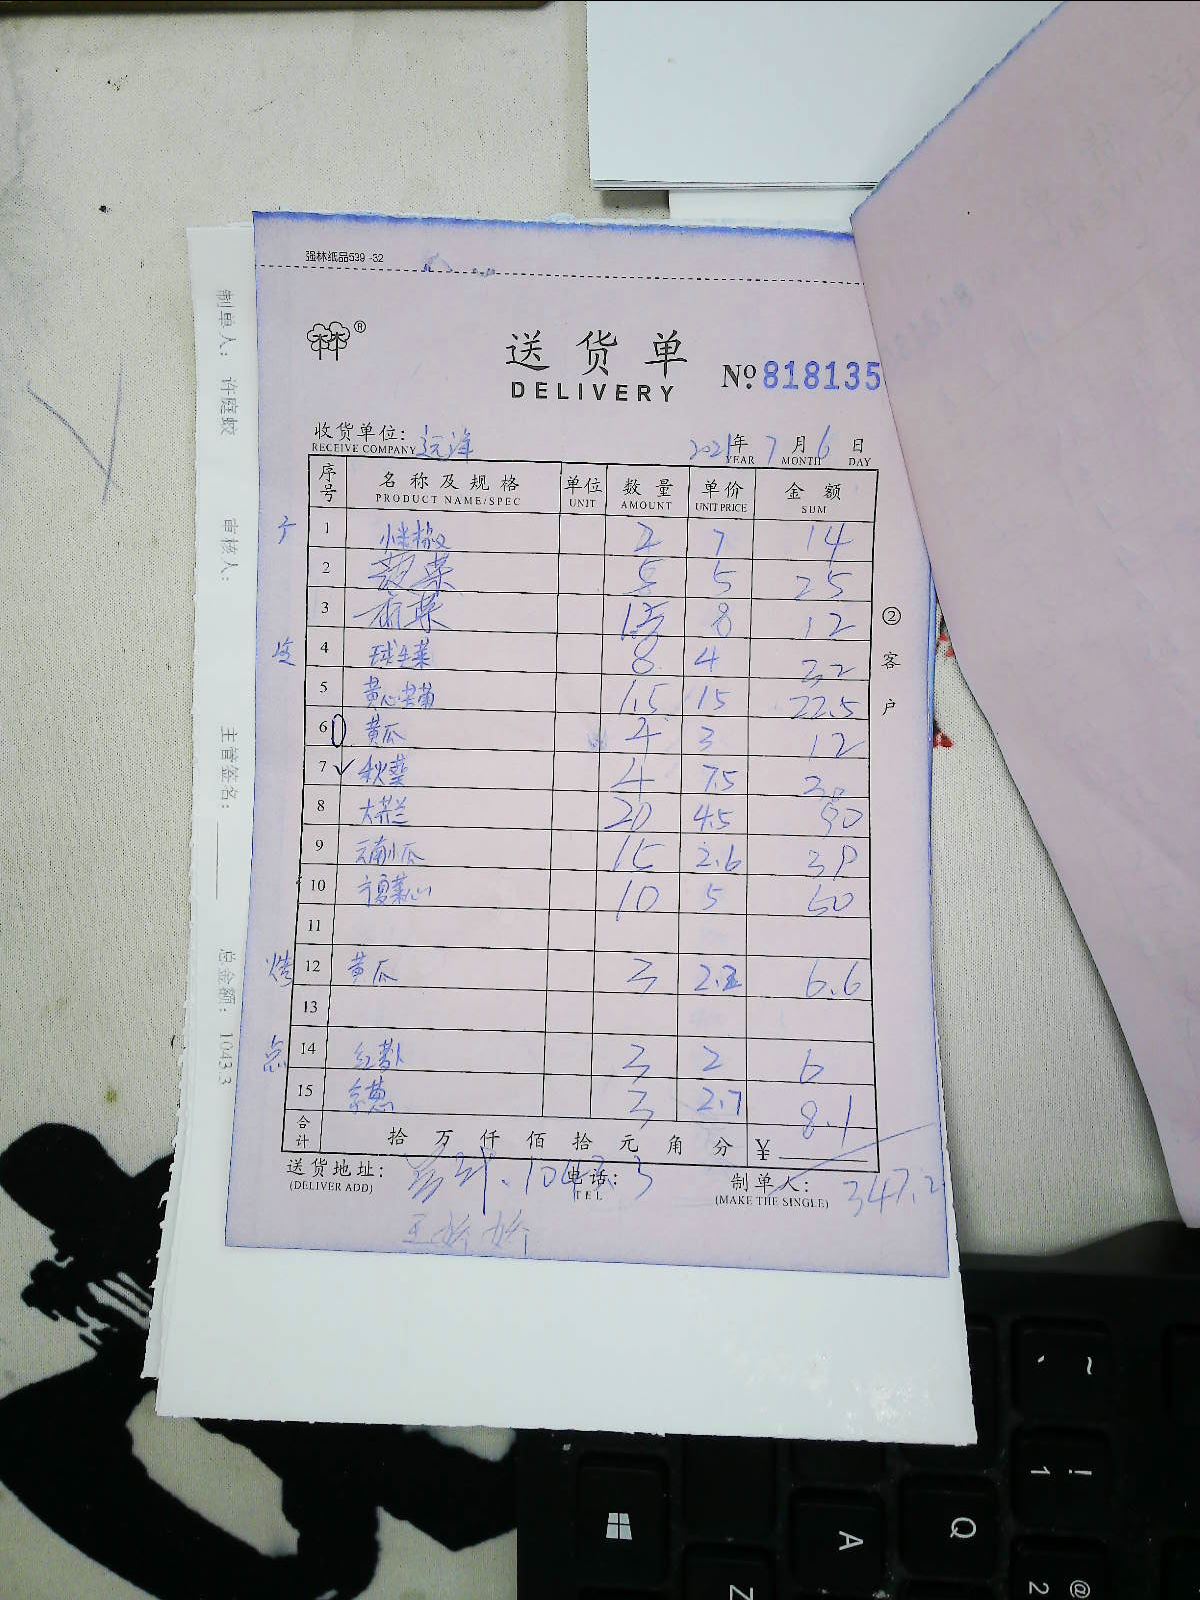 强林纸品539 -32
®
送货单
DELIVERY
№ 818135
收货单位: 远洋
2021年7月6日
RECEIVE COMPANY YEAR MONTH DAY
序号 名称及规格 单位 数量 单价 金额
PRODUCT NAME/SPEC UNIT AMOUNT UNIT PRICE SUM
1 小米椒 2 7 14
2 菠菜 5 5 25
3 香菜 1.5 8 12
4 球生菜 8 4 32
5 黄心苦菊 1.5 15 22.5
6 黄瓜 4 3 12
7 秋葵 4 7.5 30
8 大芥兰 20 4.5 90
9 云南小瓜 15 2.6 39
10 宁夏菜心 10 5 50
11
12 黄瓜 3 2.2 6.6
13
14 红萝卜 3 2 6
15 京葱 3 2.7 8.1
合计 拾万仟佰拾元角分 ¥
送货地址: 电话: 制单人:
(DELIVER ADD) TEL (MAKE THE SINGLE)
合计. 1043.3
347.2
王娇娇
②客户
制单人: 许庭蛟 审核人: 主管签名: 总金额: 1043.3
~
!
1
Q
A
@
2
Z